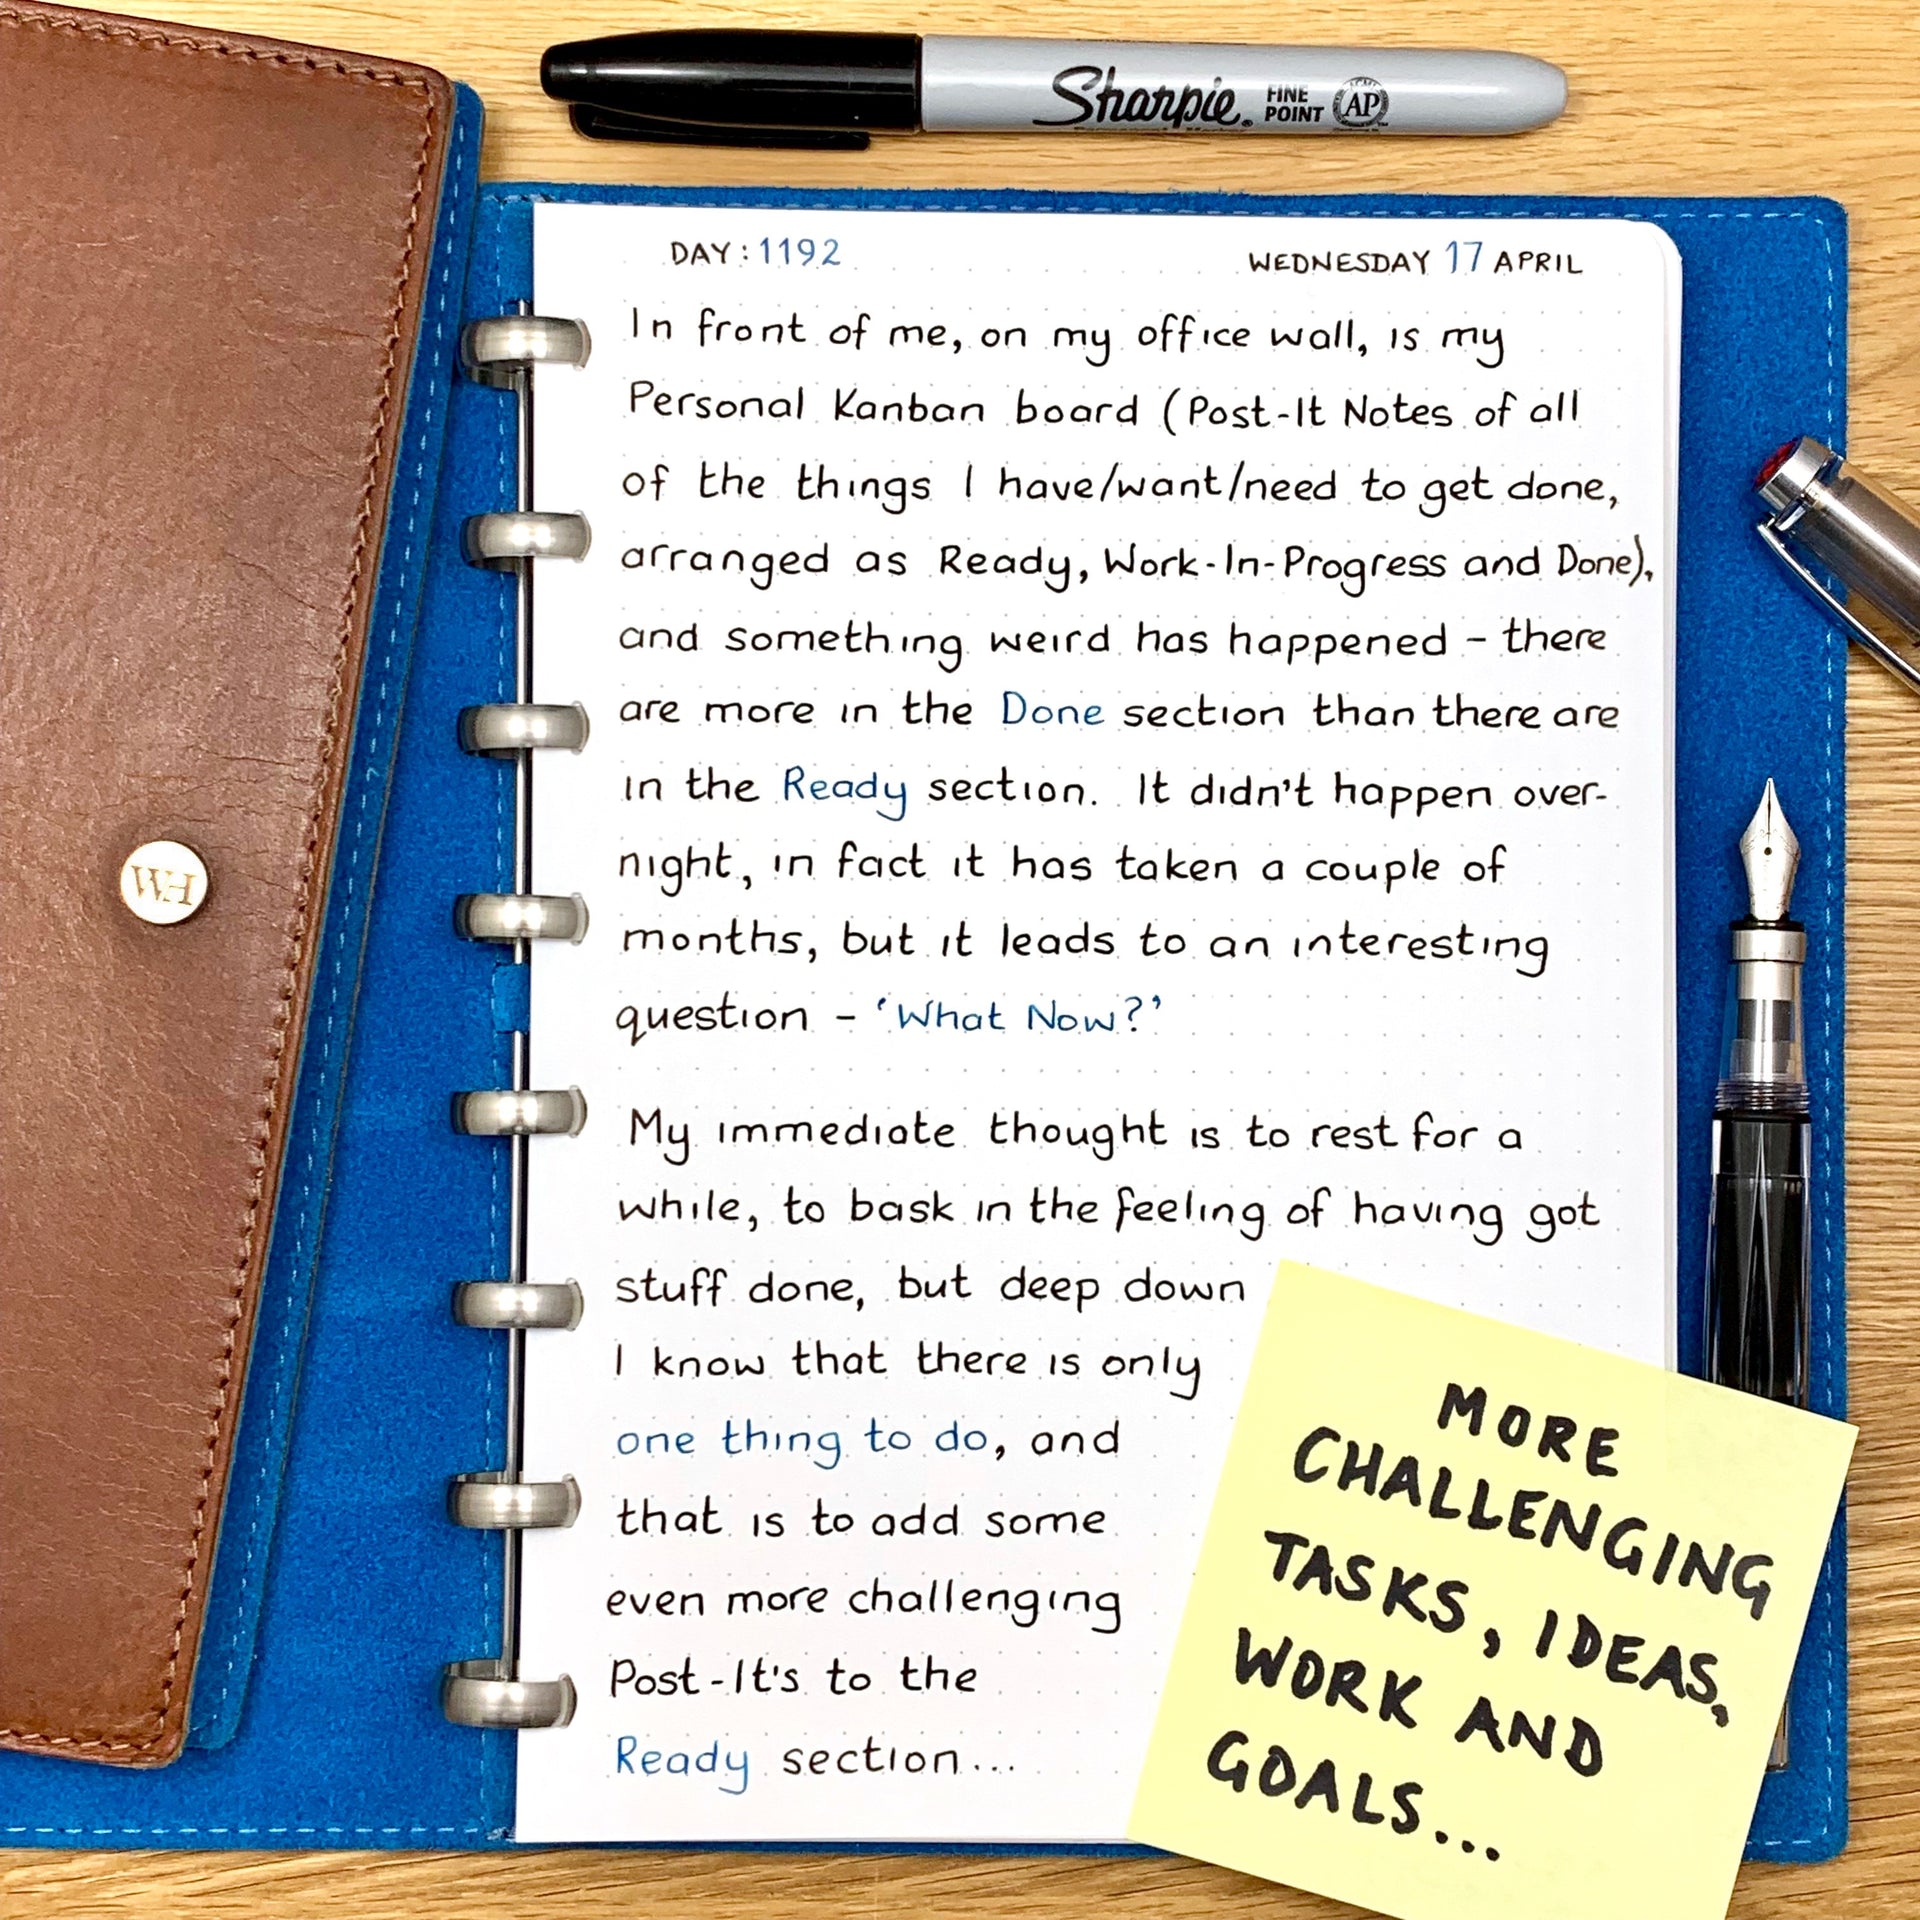 Sharpie. FINE POINT ACMI AP
DAY: 1192 WEDNESDAY 17 APRIL
In front of me, on my office wall, is my
Personal Kanban board (Post-It Notes of all
of the things I have/want/need to get done,
arranged as Ready, Work-In-Progress and Done),
and something weird has happened - there
are more in the Done section than there are
in the Ready section. It didn't happen over-
night, in fact it has taken a couple of
months, but it leads to an interesting
question - 'What Now?'
My immediate thought is to rest for a
while, to bask in the feeling of having got
stuff done, but deep down
I know that there is only
one thing to do, and
that is to add some
even more challenging
Post-It's to the
Ready section...
WH
MORE
CHALLENGING
TASKS, IDEAS,
WORK AND
GOALS...